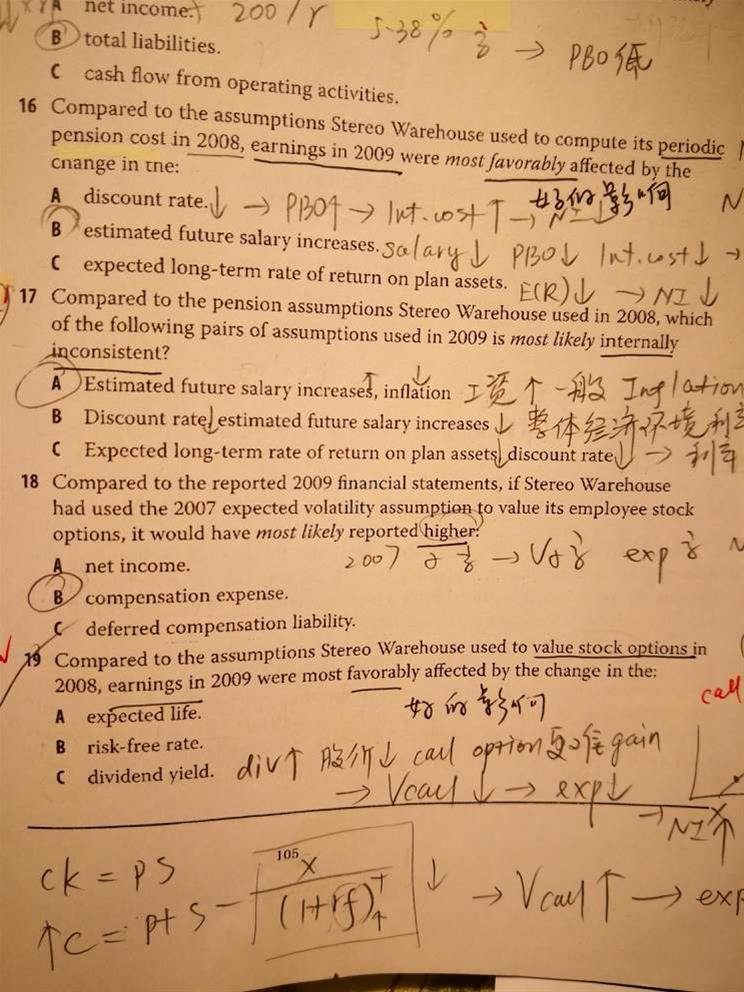 A net income. 2007
B total liabilities. 5.38% 高 → PBO低
C cash flow from operating activities.
16 Compared to the assumptions Stereo Warehouse used to compute its periodic
pension cost in 2008, earnings in 2009 were most favorably affected by the
change in the: 好的影响
A discount rate.↓ → PBO↑ → Int.cost↑ → NI↓ N
B estimated future salary increases. salary↓ PBO↓ Int.cost↓ →
C expected long-term rate of return on plan assets. E(R)↓ → NI↓
17 Compared to the pension assumptions Stereo Warehouse used in 2008, which
of the following pairs of assumptions used in 2009 is most likely internally
inconsistent?
A Estimated future salary increases,↑ inflation↓ 工资↑一般 Inflation
B Discount rate,↓ estimated future salary increases↓ 整体经济环境利率
C Expected long-term rate of return on plan assets,↓ discount rate↓ → 利率
18 Compared to the reported 2009 financial statements, if Stereo Warehouse
had used the 2007 expected volatility assumption to value its employee stock
options, it would have most likely reported higher:
A net income. 2007 σ高 → V σ高 exp高 N
B compensation expense.
C deferred compensation liability.
19 Compared to the assumptions Stereo Warehouse used to value stock options in
2008, earnings in 2009 were most favorably affected by the change in the:
A expected life. 好的影响 call
B risk-free rate.
C dividend yield. div↑ 股价↓ call option gain
→ Vcall↓ → exp↓
→ NI↑
105
ck = ps
↑c = p+s − X/(1+rf)^T↑ ↓ → Vcall↑ → exp